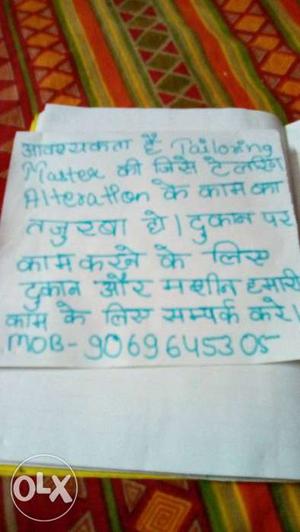 आवश्यकता है Tailoring
Master की जिसे टेलरिंग
Alteration के काम का
तजुरबा हो । दुकान पर
काम करने के लिए
दुकान और मशीन हमारी
काम के लिए सम्पर्क करे ।
MOB- 9069645305
OLX